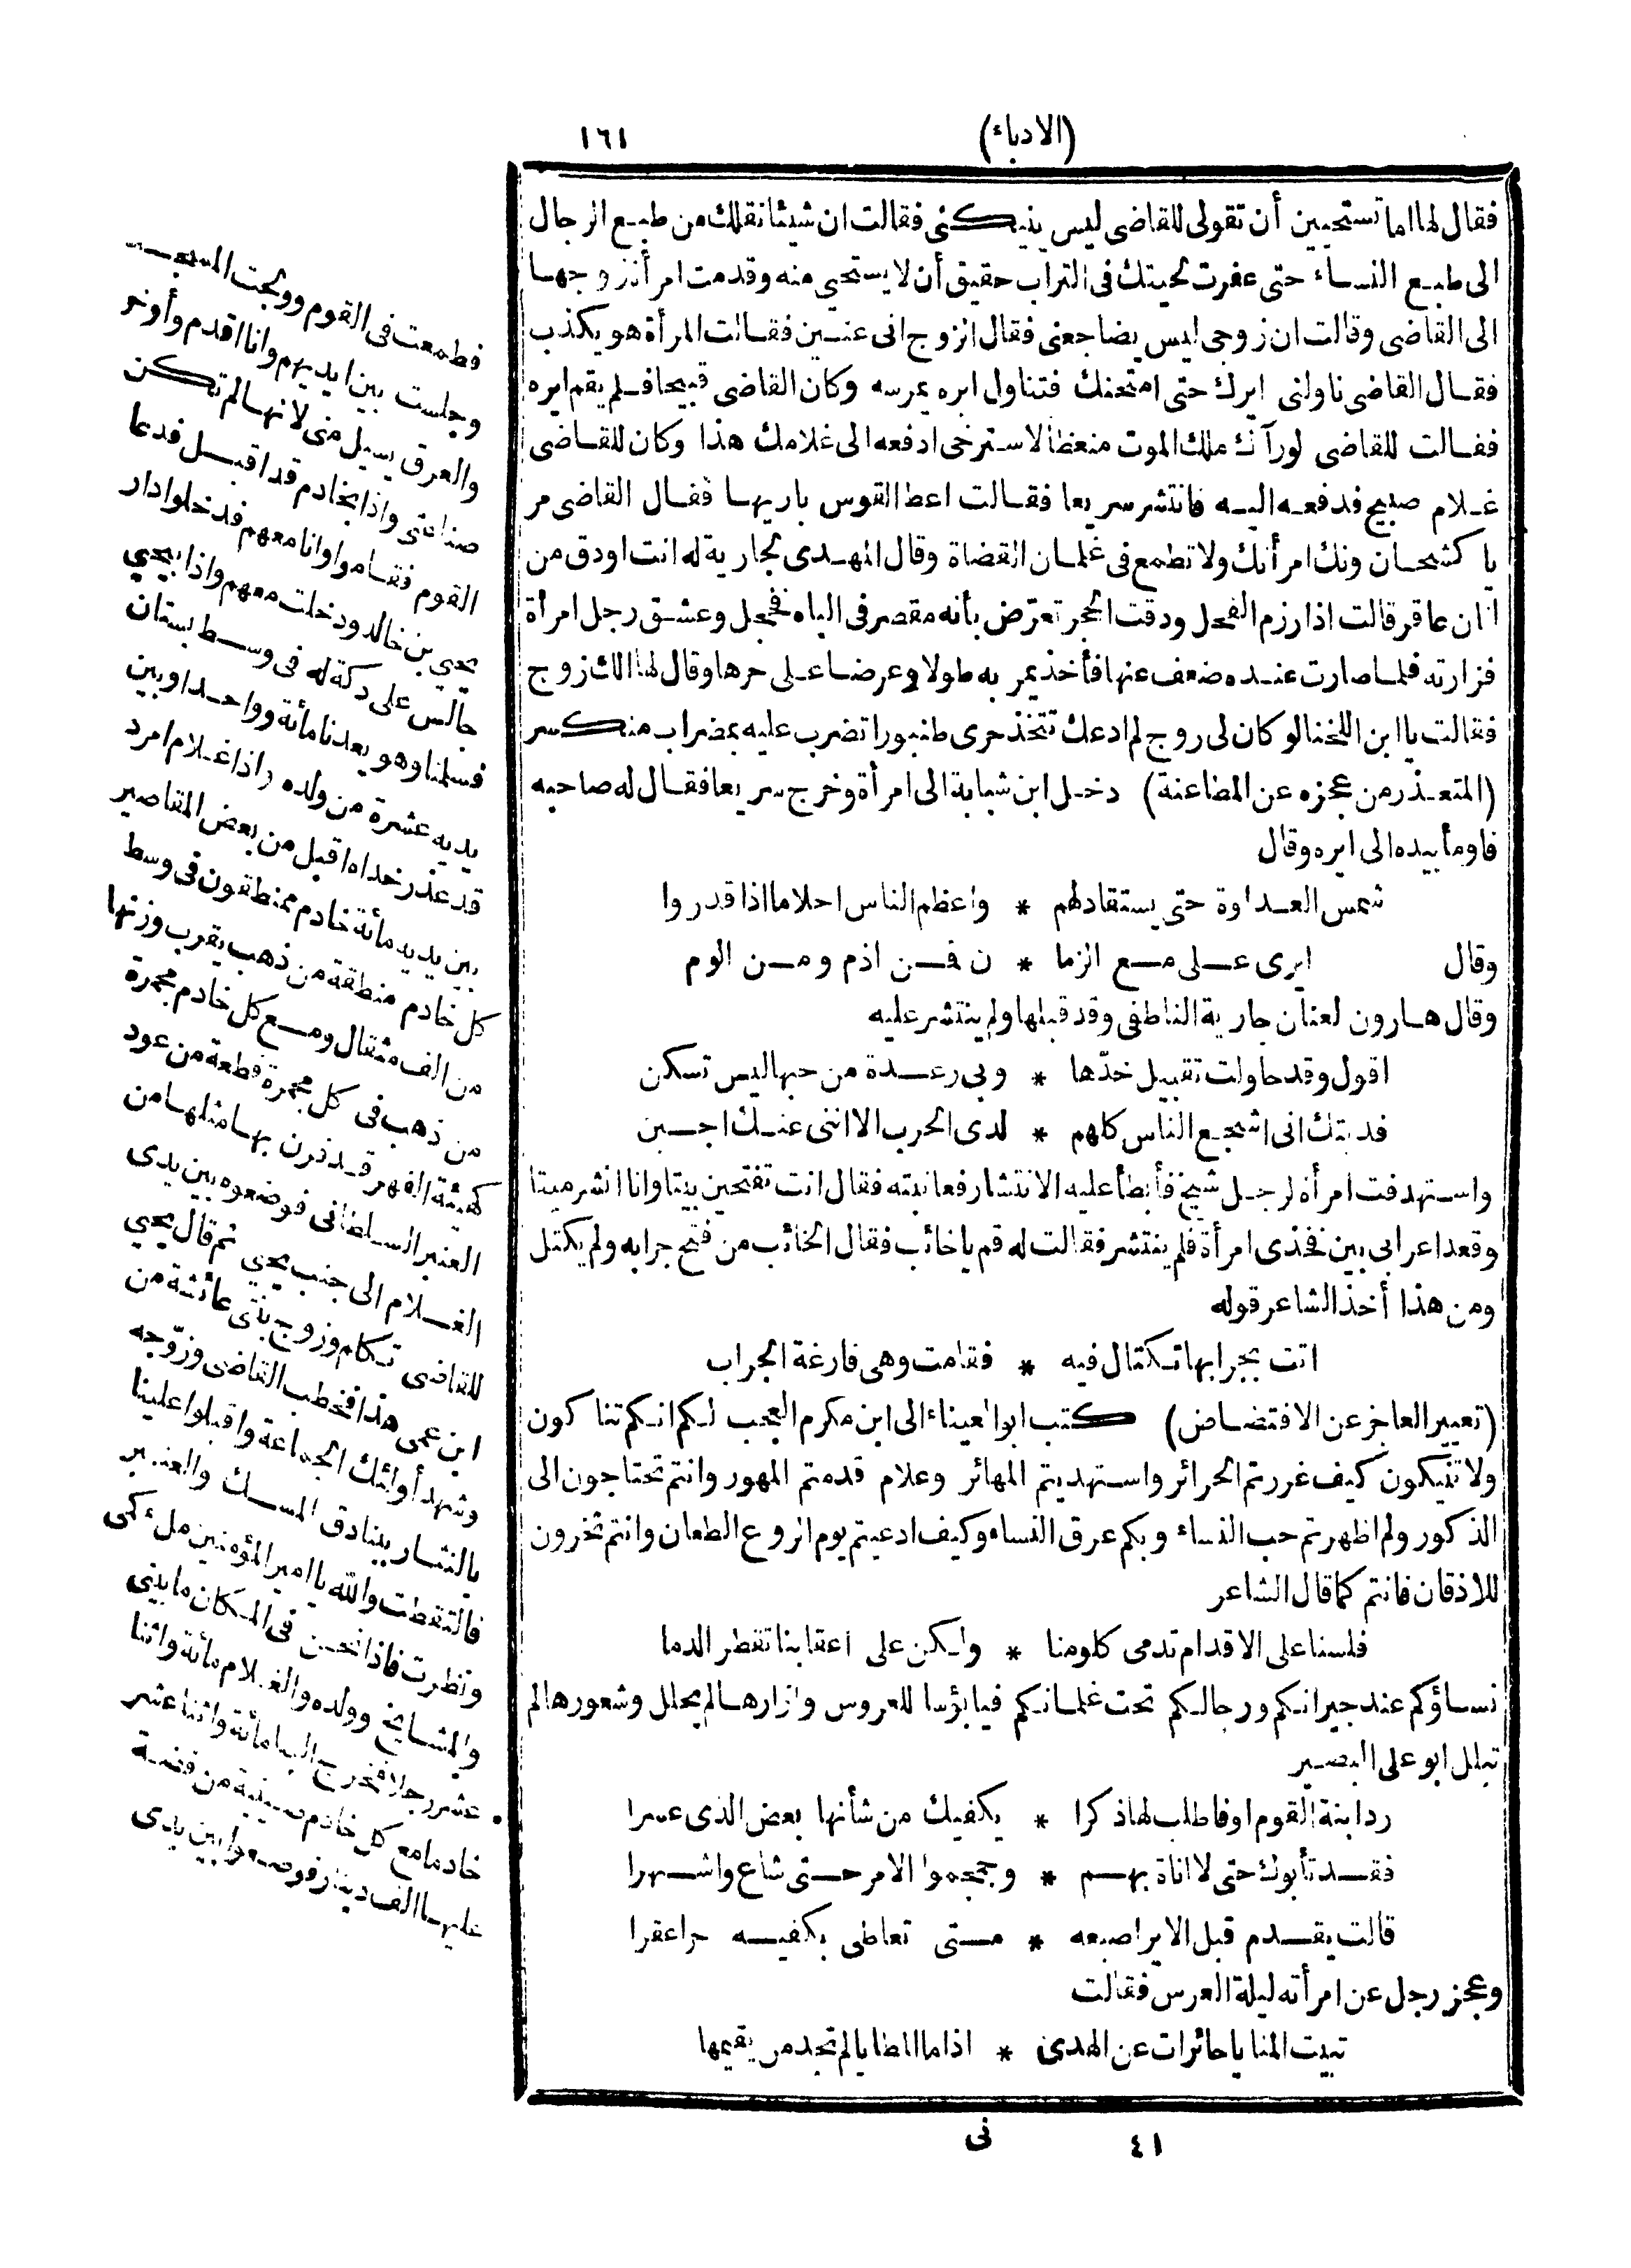 (الادباء)
١٦١
فقال لها اما تستحيين أن تقولى للقاضى ليس ينيكنى فقالت ان شيئا نقلك من طبع الرجال
الى طبع النساء حتى عفرت لحيتك فى التراب حقيق أن لا يستحيي منه وقدمت امرأة زوجها
الى القاضى وقالت ان زوجى ليس يضاجعنى فقال الزوج انى عنين فقالت المرأة هو يكذب
فقال القاضى ناولنى ايرك حتى امتحنك فتناول ايره يمرسه وكان القاضى قبيحا فلم يقم ايره
فقالت للقاضى لو رآك ملك الموت منعظا لاسترخى ادفعه الى غلامك هذا وكان للقاضى
غلام صبيح فدفعه اليه فانتشر سريعا فقالت اعط القوس باريها فقال القاضى مر
يا كشحان ونك امرأتك ولا تطمع فى غلمان القضاة وقال المهدى لجارية له انت اودق من
اتان عاقر قالت اذا رزم الفحل ودقت الحجر تعرّض بأنه مقصر فى الباه فخجل وعشق رجل امرأة
فزارته فلما صارت عنده ضعف عنها فأخذ يمر به طولا وعرضا على حرها وقال لها الك زوج
فقالت يا ابن اللخنا لو كان لى زوج لم ادعك تتخذ حرى طنبورا تضرب عليه بمضراب منكسر
(المتعذر من عجزه عن المطاعنة) دخل ابن شبابة الى امرأة وخرج سريعا فقال له صاحبه
فاومأ بيده الى ايره وقال
شمس العداوة حتى يستقاد لهم * واعظم الناس احلاما اذا قدروا
وقال ايرى على مع الزما * ن فمن اذم ومن الوم
وقال هارون لعنان جارية الناطفى وقد قبلها ولم ينتشر عليه
اقول وقد حاولت تقبيل خدّها * وبى رعدة من حبها ليس تسكن
فديتك انى اشجع الناس كلهم * لدى الحرب الا اننى عنك اجبن
واستهدفت امرأة لرجل شيخ فأبطأ عليه الانتشار فعاتبته فقال انت تفتحين بيتا وانا انشر ميتا
وقعد اعرابى بين فخذى امرأة فلم ينتشر فقالت له قم يا خائب فقال الخائب من فتح جرابه ولم يكتل
ومن هذا أخذ الشاعر قوله
اتت بجرابها تكتال فيه * فقامت وهى فارغة الجراب
(تعيير العاجز عن الافتضاض) كتب ابو العيناء الى ابن مكرم العجب لكم انكم تناكون
ولا تنيكون كيف غررتم الحرائر واستهديتم المهائر وعلام قدمتم المهور وانتم تحتاجون الى
الذكور ولم اظهرتم حب النساء وبكم عرق النساء وكيف ادعيتم يوم الروع الطعان وانتم تخرون
للاذقان فانتم كما قال الشاعر
فلسنا على الاقدام تدمى كلومنا * ولكن على اعقابنا تقطر الدما
نساؤكم عند جيرانكم ورجالكم تحت غلمانكم فيا بؤسا للعروس وازارها لم يحلل وشعورها لم
تبلل ابو على البصير
رد ابنة القوم او فاطلب لها ذكرا * يكفيك من شأنها بعض الذى عسرا
فقد تأبوك حتى لا اناة بهم * وجمجموا الامر حتى شاع واشتهرا
قالت يقدم قبل الاير اصبعه * متى تعاطى بكفيه حرا عقرا
وعجز رجل عن امرأته ليلة العرس فقالت
تبيت المنايا حائرات عن الهدى * اذا ما المطايا لم تجد من يقيمها
٤١
نى
فطمعت فى القوم وولجت
وجلست بين ايديهم وانا اقدم وأوخر
والعرق يسيل منى لانها لم تكن
صناعتى واذا بخادم قد اقبل فدعا
القوم فقاموا وانا معهم فدخلوا دار
يحيي بن خالد ودخلت معهم واذا بيحيي
جالس على دكة له فى وسط بستان
فسلمنا وهو يعدنا مائة وواحدا وبين
يديه عشرة من ولده واذا غلام امرد
قد عذر خداه اقبل من بعض المقاصير
بين يديه مائة خادم ممنطقون فى وسط
كل خادم منطقة من ذهب يقرب وزنها
من الف مثقال ومع كل خادم مجمرة
من ذهب فى كل مجمرة قطعة من عود
كهيئة الفهر قد قرن بها مثلها من
العنبر السلطانى فوضعوه بين يدى
الغلام الى جنب يحيي ثم قال يحيي
للقاضى تكلم وزوج بنتى عائشة من
ابن عمى هذا فخطب القاضى وزوّجه
وشهد أولئك الجماعة واقبلوا علينا
بالنثار ببنادق المسك والعنبر
فالتقطت والله يا امير المؤمنين ملء كمى
ونظرت فاذا نحن فى المكان ما بينى
والمشايخ وولده والغلام مائة واثنا
عشر رجلا فخرج الينا مائة واثنا عشر
خادما مع كل خادم صينية من فضة
عليها الف دينار فوضعوا بين يدى